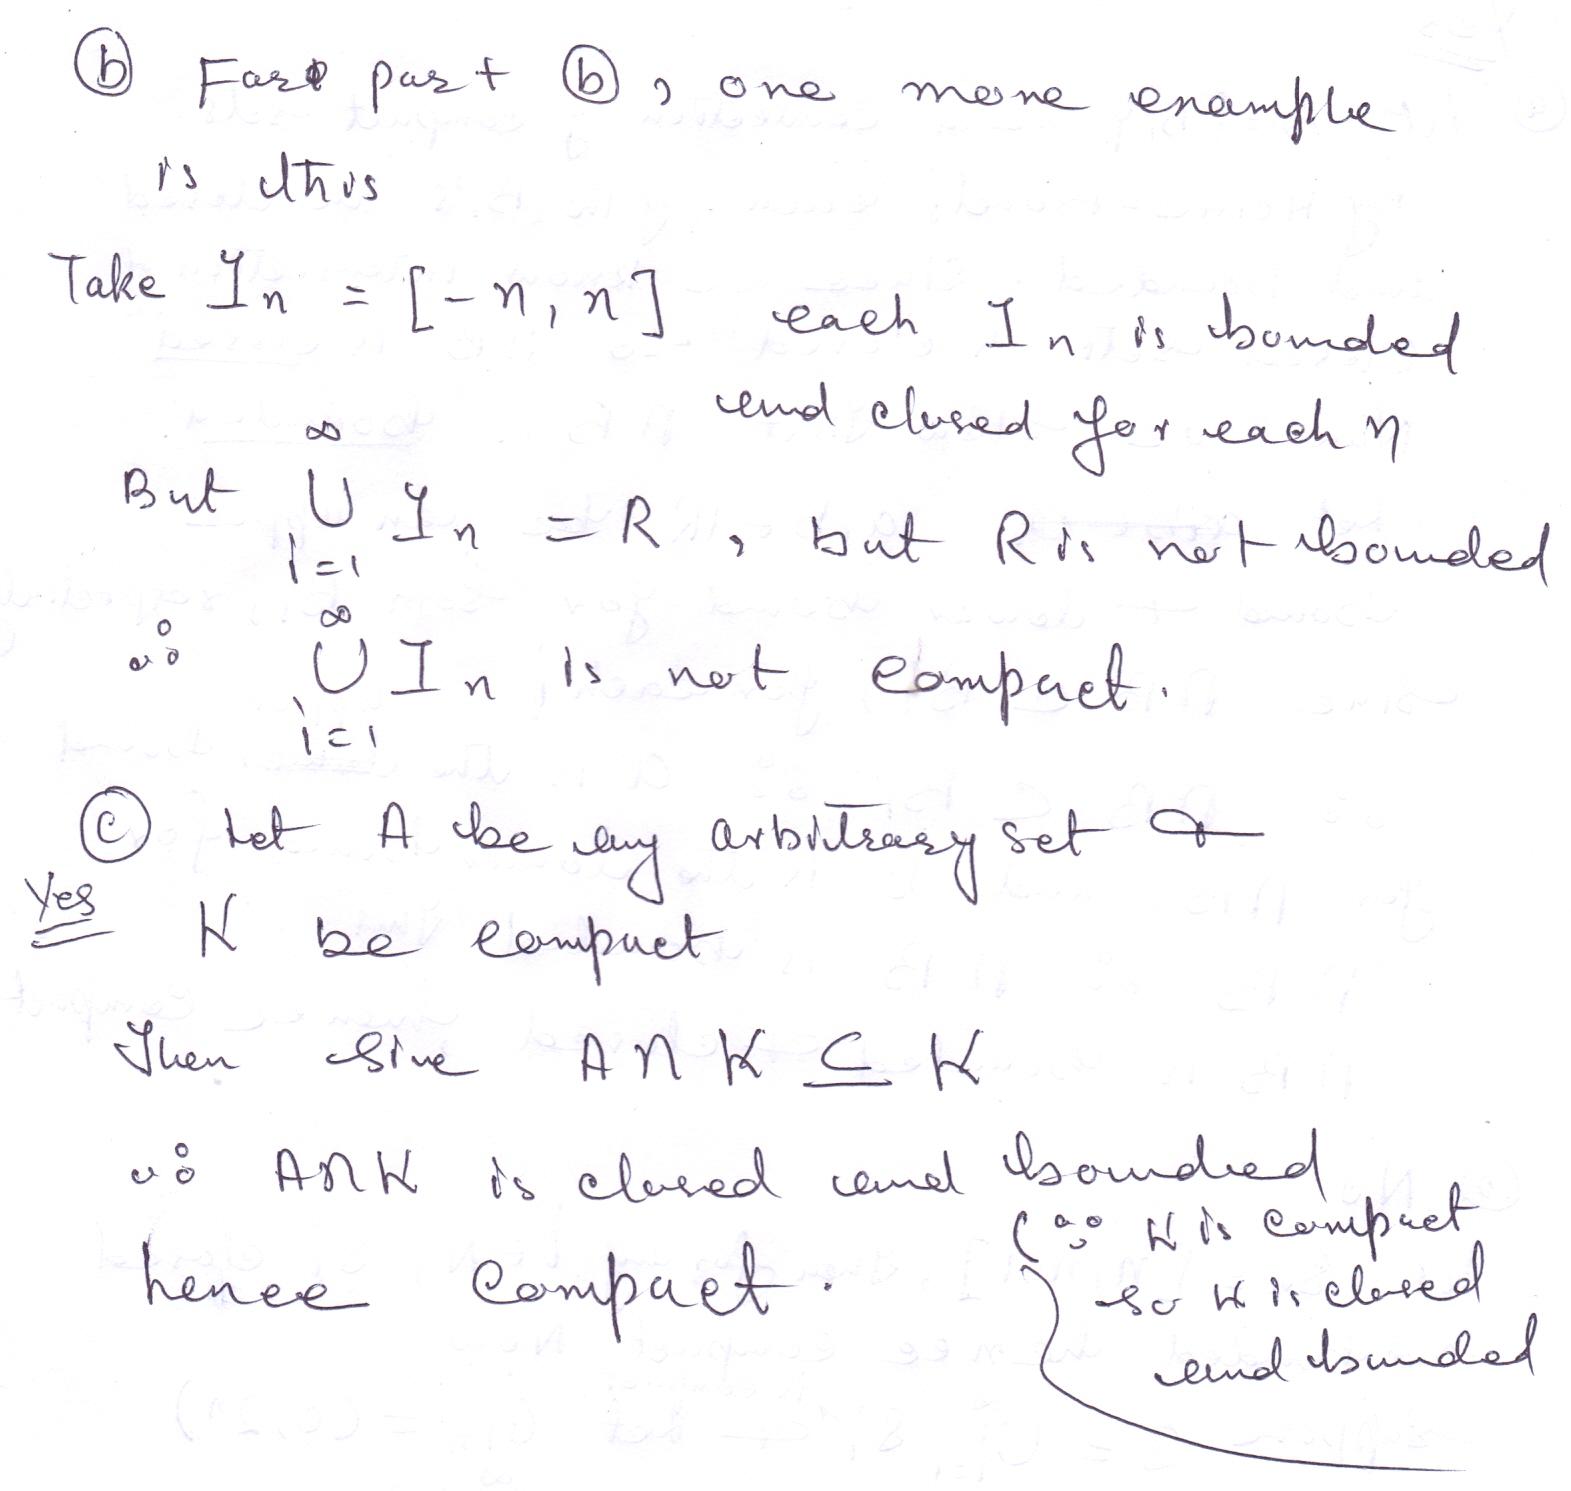 ⓑ For part ⓑ, one more example
is this
Take Iₙ = [-n, n] each Iₙ is bounded
and closed for each n
But ∞⋃i=1 Iₙ = R, but R is not bounded
∴ ∞⋃i=1 Iₙ is not compact.
ⓒ Let A be any arbitrary set &
Yes K be compact
Then Sine A ∩ K ⊆ K
∴ A∩K is closed and bounded
(∵ K is compact
hence compact. so K is closed
and bounded